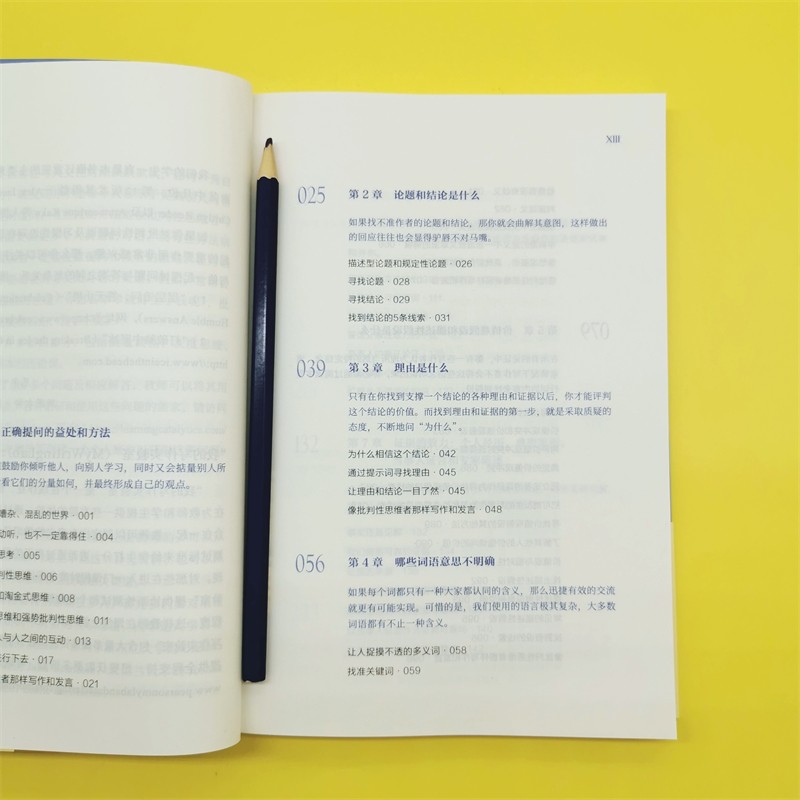 正确提问的益处和方法
鼓励你倾听他人，向别人学习，同时又会掂量别人所
看它们的分量如何，并最终形成自己的观点。
嘈杂、混乱的世界·001
动听，也不一定靠得住·004
思考·005
判性思维·006
和淘金式思维·008
思维和强势批判性思维·011
人与人之间的互动·013
行下去·017
者那样写作和发言·021
XIII
025 第2章 论题和结论是什么
如果找不准作者的论题和结论，那你就会曲解其意图，这样做出
的回应往往也会显得驴唇不对马嘴。
描述型论题和规定性论题·026
寻找论题·028
寻找结论·029
找到结论的5条线索·031
039 第3章 理由是什么
只有在你找到支撑一个结论的各种理由和证据以后，你才能评判
这个结论的价值。而找到理由和证据的第一步，就是采取质疑的
态度，不断地问“为什么”。
为什么相信这个结论·042
通过提示词寻找理由·045
让理由和结论一目了然·045
像批判性思维者那样写作和发言·048
056 第4章 哪些词语意思不明确
如果每个词都只有一种大家都认同的含义，那么迅捷有效的交流
就更有可能实现。可惜的是，我们使用的语言极其复杂，大多数
词语都有不止一种含义。
让人捉摸不透的多义词·058
找准关键词·059